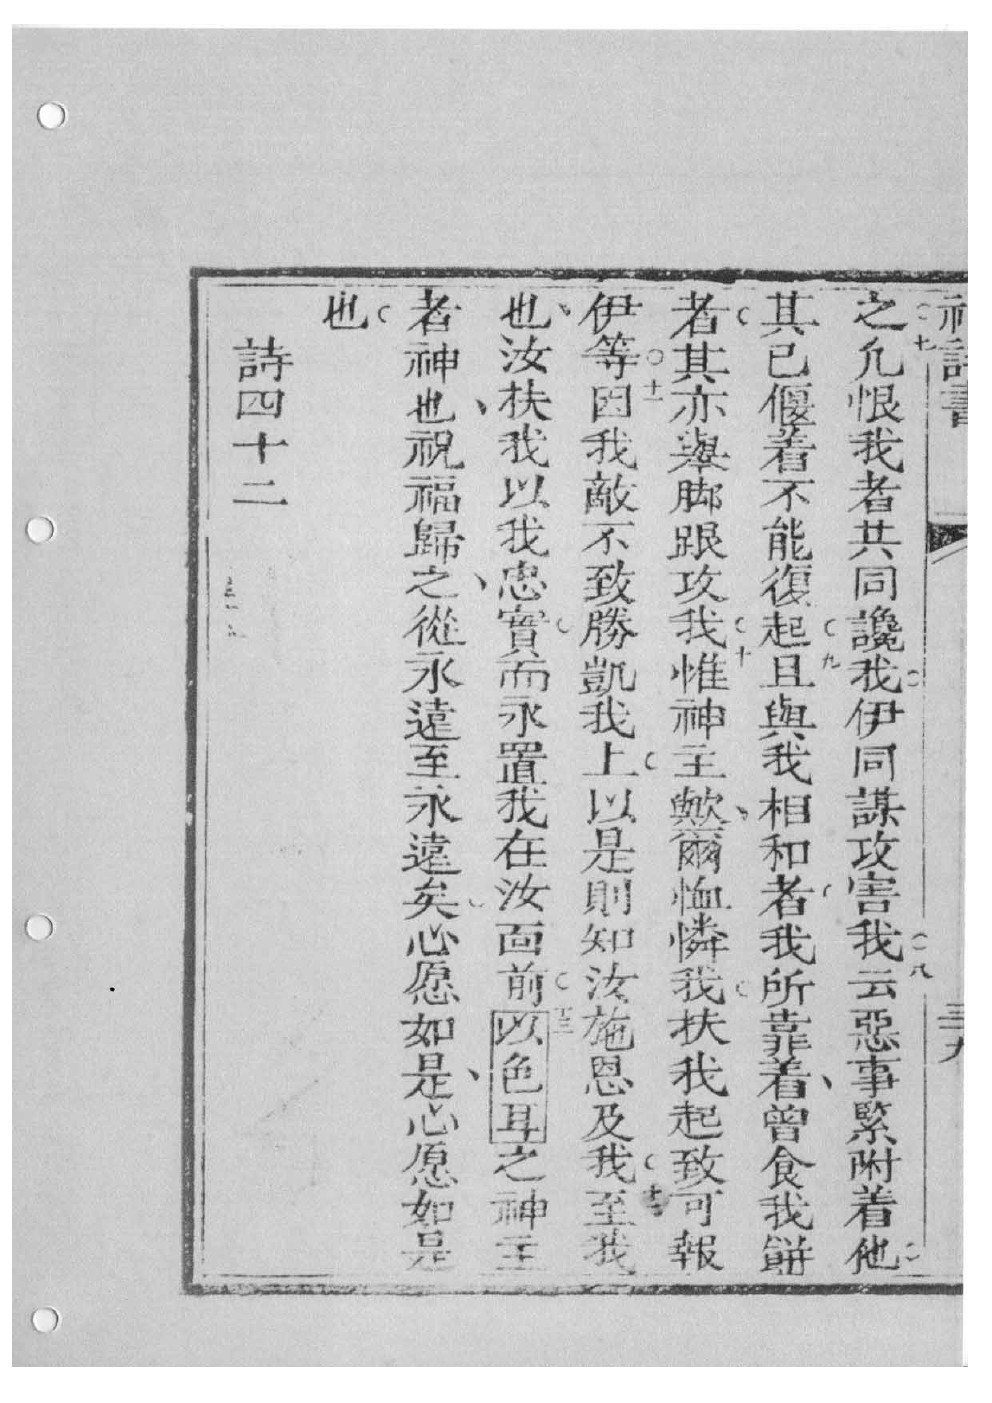 之。七凢恨我者共同讒我。伊同謀攻害我。八云惡事緊附着他。
其已偃着不能復起。九且與我相和者。我所靠着、曾食我餅
者。其亦舉脚跟攻我。十惟神主歟、爾恤憐我。扶我起致可報
伊等。十一因我敵不致勝凱我上。以是則知汝施恩及我。十二至我
也、汝扶我以我忠實。而永置我在汝面前。十三以色耳之神主
者神也、祝福歸之、從永遠至永遠矣。心愿如是、心愿如是
也。
詩四十二